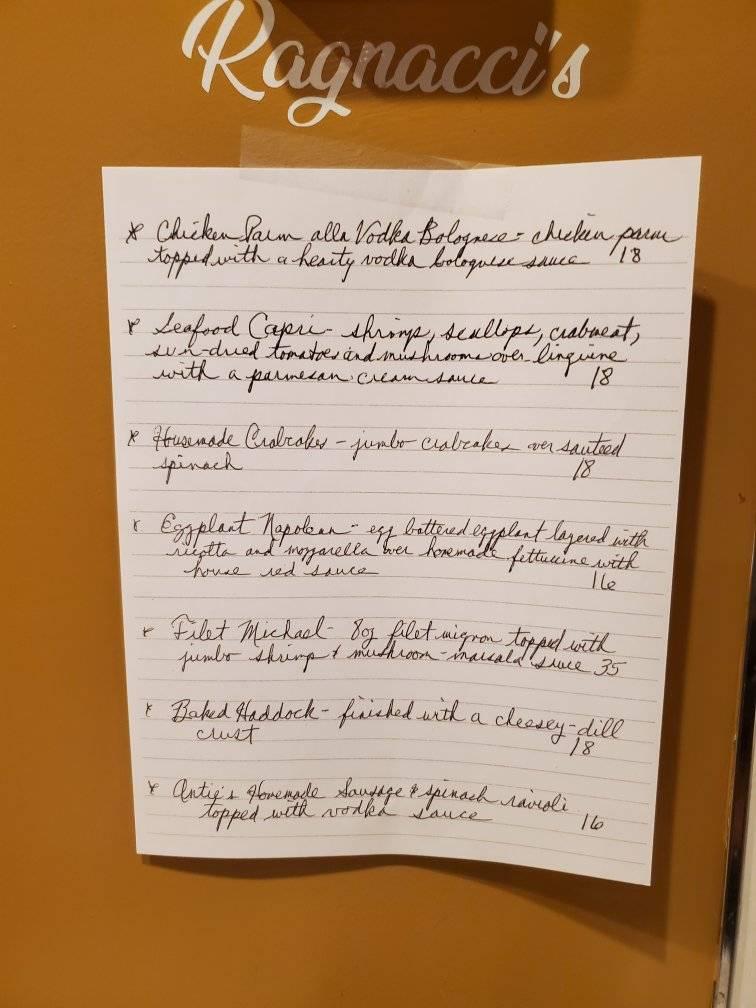 Ragnacci's
* Chicken Parm alla Vodka Bolognese - chicken parm
topped with a hearty vodka bolognese sauce 18
* Seafood Capri - shrimp, scallops, crabmeat,
sun-dried tomatoes and mushrooms over linguine
with a parmesan cream sauce 18
* Housemade Crabcakes - jumbo crabcakes over sauteed
spinach 18
* Eggplant Napolean - egg battered eggplant layered with
ricotta and mozzarella over homemade fettuccine with
house red sauce 16
* Filet Michael - 8oz filet mignon topped with
jumbo shrimp & mushroom-marsala sauce 35
* Baked Haddock - finished with a cheesey-dill
crust 18
* Antie's Homemade Sausage & spinach ravioli
topped with vodka sauce 16